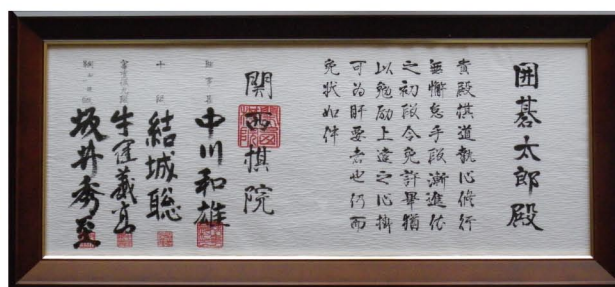 囲碁太郎殿
貴殿棋道執心修行
無懈怠手段漸進依
之初段令免許畢猶
以勉励上達之心掛
可為肝要者也仍而
免状如件
関西棋院
中川和雄
十段
結城聡
牛窪義高
坂井秀至